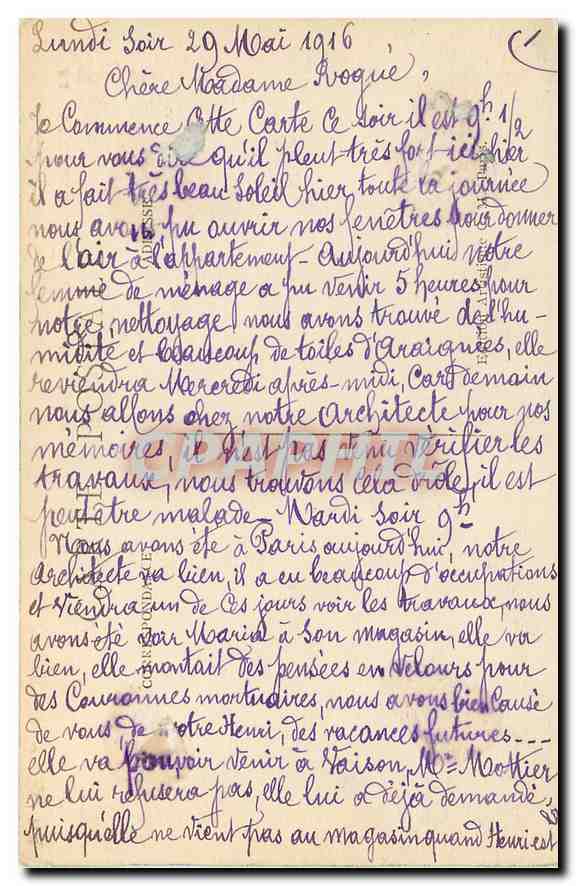 Lundi Soir 29 Mai 1916 (1
Chère Madame Rogué,
Je Commence Cette Carte Ce soir il est 9h 1/2
pour vous dire qu'il pleut très fort ici hier
il a fait très beau Soleil hier toute la journée
nous avons pu ouvrir nos fenêtres pour donner
de l'air à l'appartement - Aujourd'hui notre
femme de ménage a pu venir 5 heures pour
notre nettoyage nous avons trouvé de l'hu-
midité et beaucoup de toiles d'Araignées, elle
reviendra Mercredi après-midi, Car demain
nous allons chez notre Architecte pour nos
mémoires, il n'est pas venu vérifier les
travaux, nous trouvons cela drôle, il est
peut être malade - Mardi Soir 9h -
Nous avons été à Paris aujourd'hui, notre
Architecte va bien, il a eu beaucoup d'occupations
et viendra un de Ces jours voir les travaux, nous
avons été voir Maria à Son magasin, elle va
bien, elle montait des pensées en Velours pour
des Couronnes mortuaires, nous avons bien Causé
de vous de votre Henri, des vacances futures ---
elle va pouvoir venir à Vaison, Mr Mottier
ne lui refusera pas, elle lui a déjà demandé,
puisqu'elle ne vient pas au magasin quand Henri est là
CARTE POSTALE
ADRESSE
CORRESPONDANCE
CPAPHIL